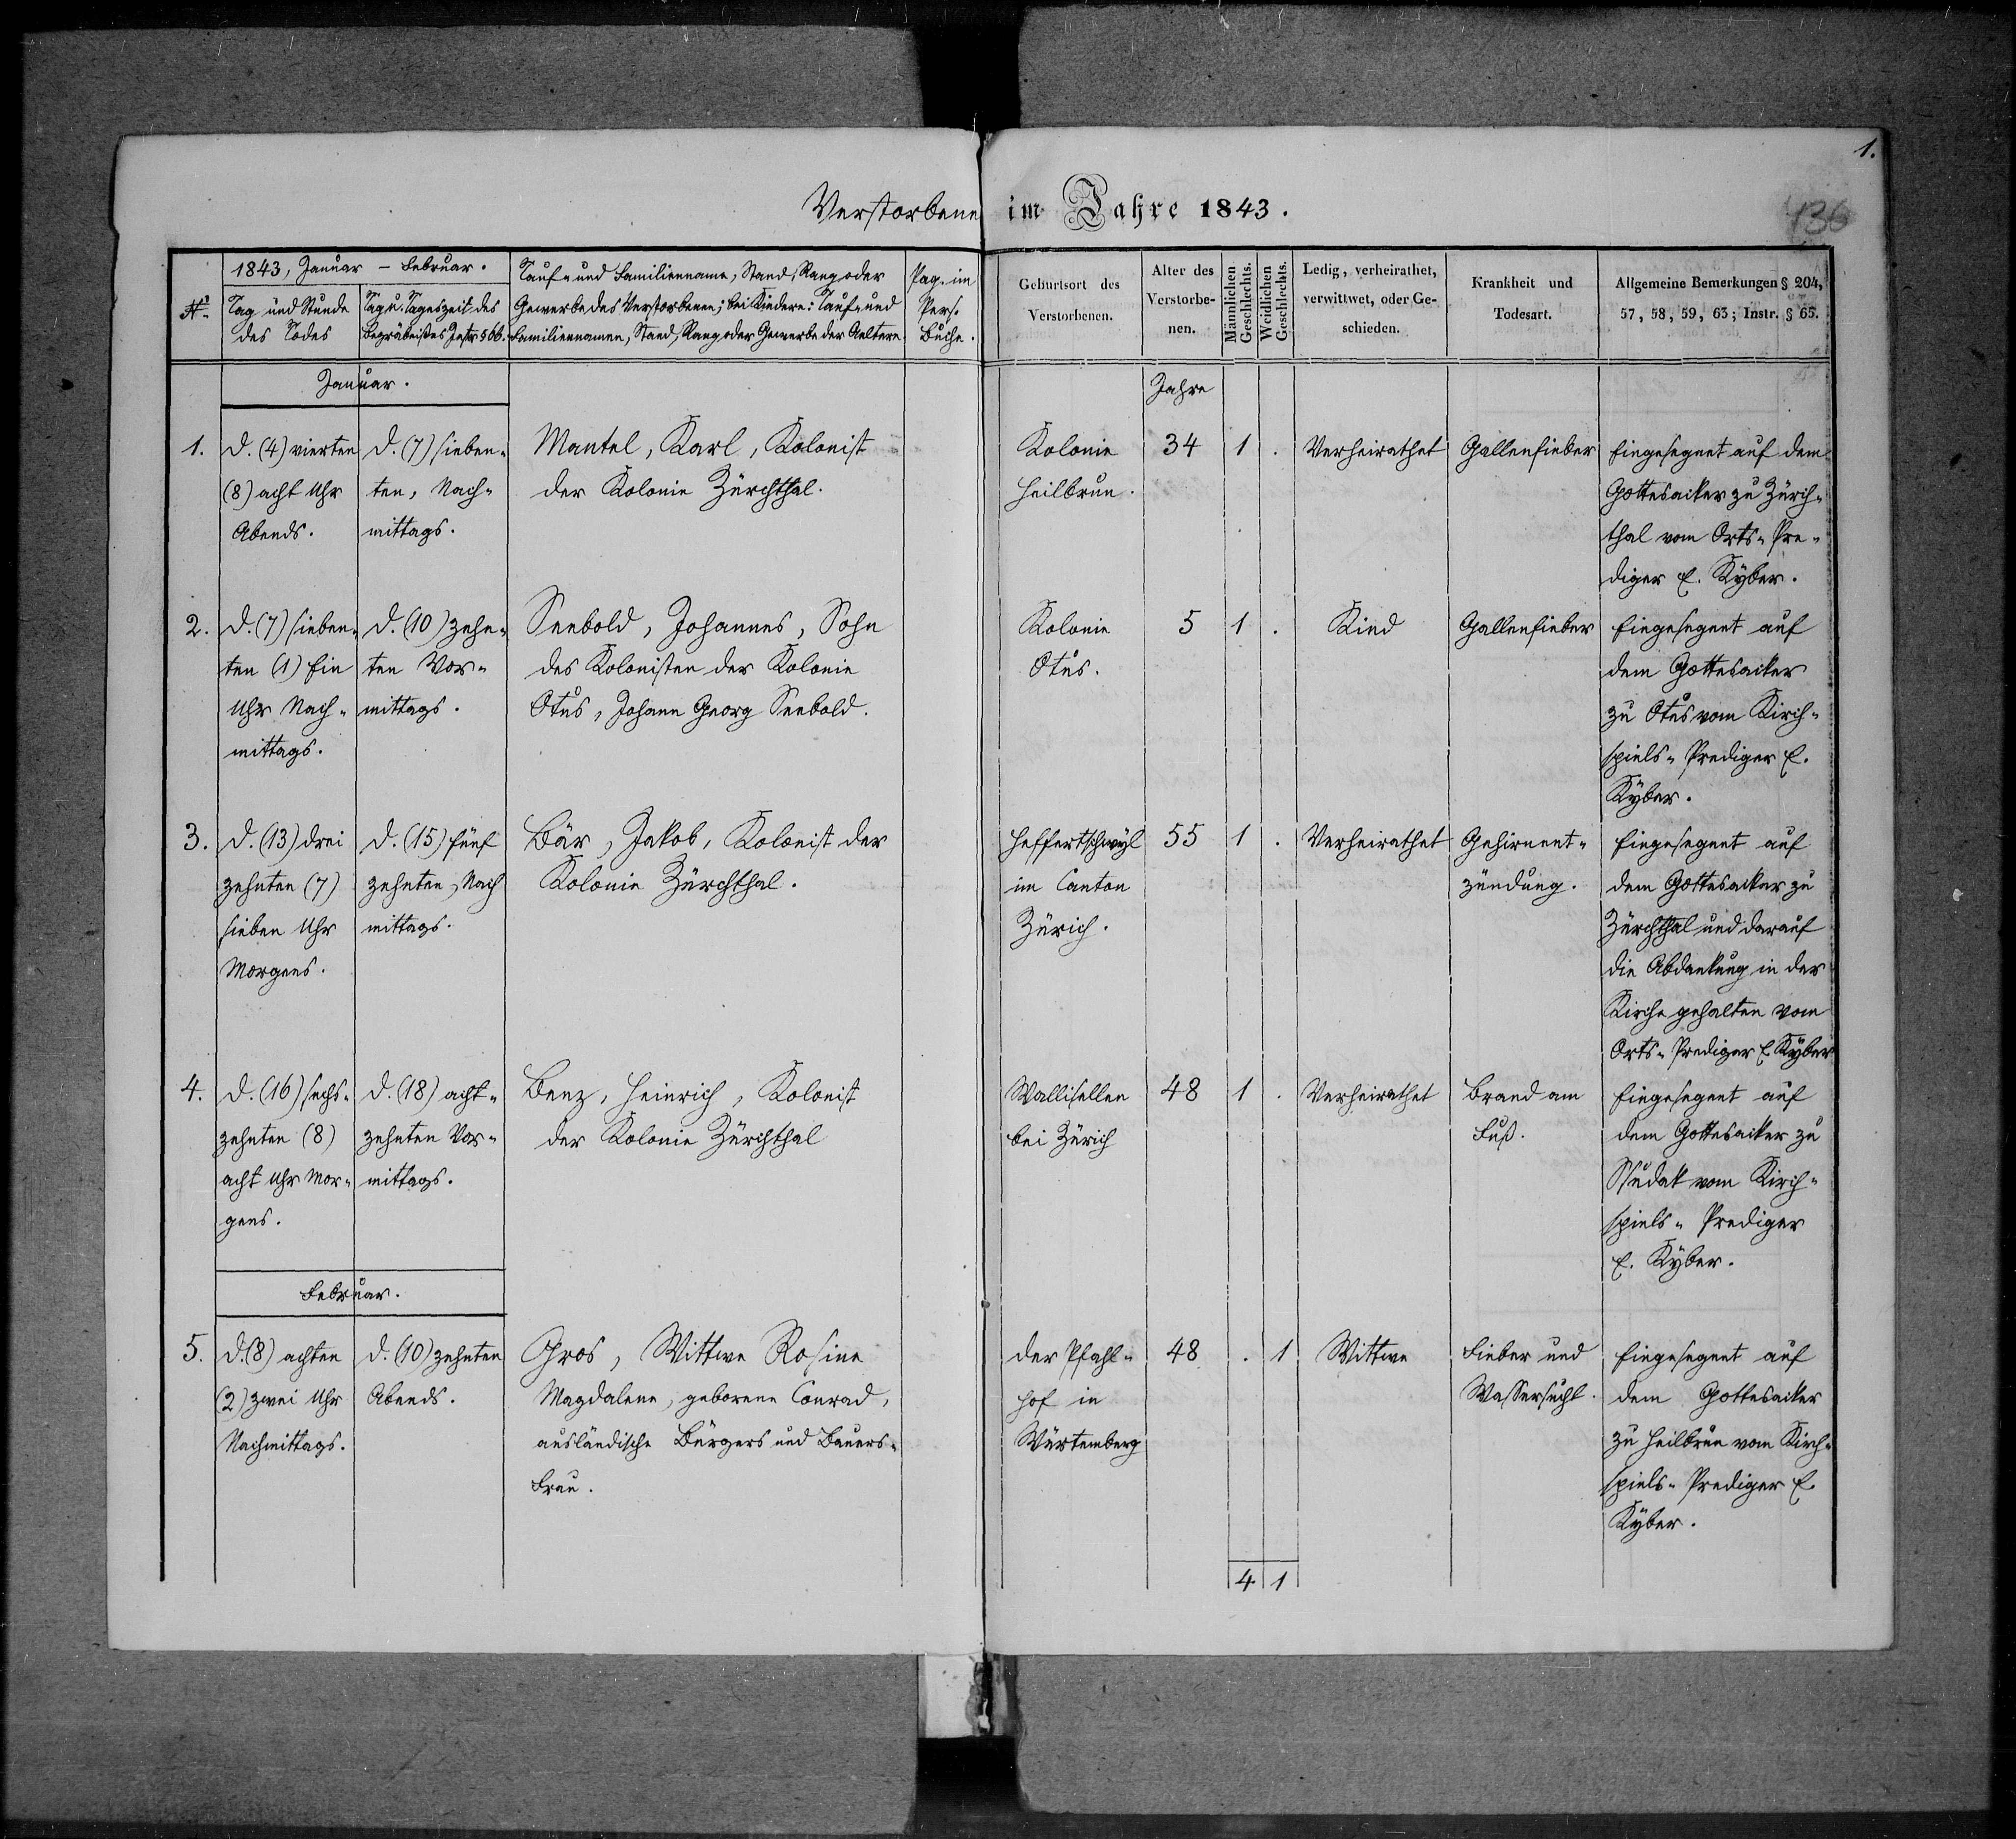 1.
Verstorbene im Jahre 1843.
136
1843, Januar – Februar.
№
Tag und Stunde des Todes
Tag u. Tageszeit des Begräbnißes Instr § 66.
Tauf- und Familienname, Stand, Rang oder
Gewerbe des Verstorbenen; bei Kindern: Tauf- und
Familiennamen, Stand, Rang oder Gewerbe der Aeltern.
Pag. im
Pers.
Buche.
Geburtsort des
Verstorbenen.
Alter des
Verstorbe-
nen.
Männlichen
Geschlechts.
Weiblichen
Geschlechts.
Ledig, verheirathet,
verwittwet, oder Ge-
schieden.
Krankheit und
Todesart.
Allgemeine Bemerkungen § 204,
57, 58, 59, 63; Instr. § 65.
Januar.
Jahre
1.
D. (4) vierten
(8) acht Uhr
Abends.
d. (7) sieben-
ten, Nach-
mittags.
Mantel, Karl, Kolonist
der Kolonie Zürchthal.
Kolonie
Heilbrun.
34
1
.
Verheirathet
Gallenfieber
Eingesegnet auf dem
Gottesacker zu Zürch-
thal vom Orts-Pre-
diger E. Kyber.
2.
D. (7) sieben-
ten (1) Ein
Uhr Nach-
mittags.
d. (10) zehn-
ten Vor-
mittags.
Seebold, Johannes, Sohn
des Kolonisten der Kolonie
Otus, Johann Georg Seebold.
Kolonie
Otus.
5
1
.
Kind
Gallenfieber
Eingesegnet auf
dem Gottesacker
zu Otus vom Kirch-
spiels-Prediger E.
Kyber.
3.
D. (13) drei
zehnten (7)
sieben Uhr
Morgens.
d. (15) fünf
zehnten, Nach
mittags.
Bär, Jakob, Kolonist der
Kolonie Zürchthal.
Heffertschwyl
im Canton
Zürich.
55
1
.
Verheirathet
Gehirnent-
zündung.
Eingesegnet auf
dem Gottesacker zu
Zürchthal und darauf
die Abdankung in der
Kirche gehalten vom
Orts-Prediger E Kyber
4.
D. (16) sechs-
zehnten (8)
acht Uhr Mor-
gens.
d. (18) acht-
zehnten Vor-
mittags.
Benz, Heinrich, Kolonist
der Kolonie Zürchthal
Wallisellen
bei Zürich
48
1
.
Verheirathet
Brand am
Fuß.
Eingesegnet auf
dem Gottesacker zu
Ssudak vom Kirch-
spiels-Prediger
E. Kyber.
Februar.
5.
D. (8) achten
(2) zwei Uhr
Nachmittags.
d. (10) zehnten
Abends.
Gros, Wittwe Rosine
Magdalene, geborene Conrad,
ausländische Bürgers und Bauers-
frau.
der Pfahl-
hof in
Würtemberg
48
.
1
Wittwe
Fieber und
Wassersucht.
Eingesegnet auf
dem Gottesacker
zu Heilbrun vom Kirch-
spiels-Prediger E.
Kyber.
4
1